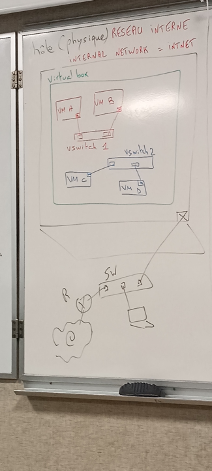 hôte (physique) RESEAU INTERNE
INTERNAL NETWORK = INTNET
virtual box
VM A
VM B
vswitch 1
vswitch 2
VM C
VM D
SW
R